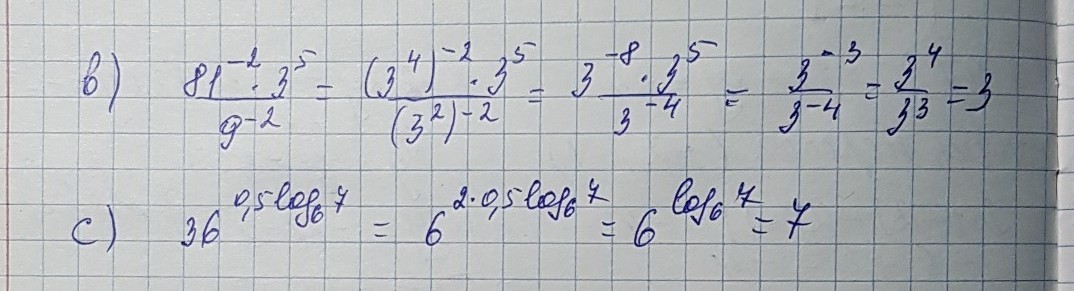 b) 81^-2 · 3^5 / 9^-2 = (3^4)^-2 · 3^5 / (3^2)^-2 = 3^-8 · 3^5 / 3^-4 = 3^-3 / 3^-4 = 3^4 / 3^3 = 3
c) 36^0,5log₆7 = 6^2·0,5log₆7 = 6^log₆7 = 7